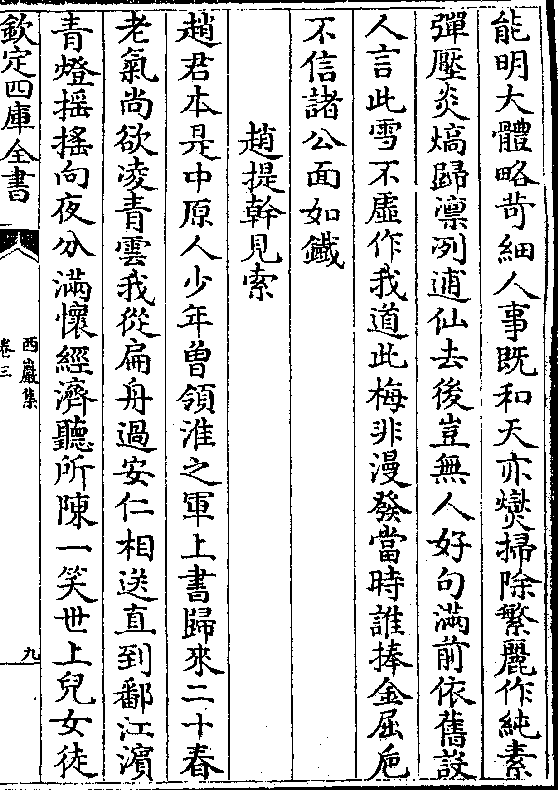 能明大體略苛細人事既和天亦爕掃除繁麗作純素
彈壓炎熇歸凛冽逋仙去後豈無人好句滿前依舊設
人言此雪不虛作我道此梅非漫發當時誰捧金屈巵
不信諸公面如鐵
趙提幹見索
趙君本是中原人少年曽領淮之軍上書歸來二十春
老氣尚欲凌青雲我從扁舟過安仁相送直到鄱江濱
青燈揺揺向夜分滿懷經濟聽所陳一笑世上兒女徒
欽定四庫全書
西巖集
卷三
九